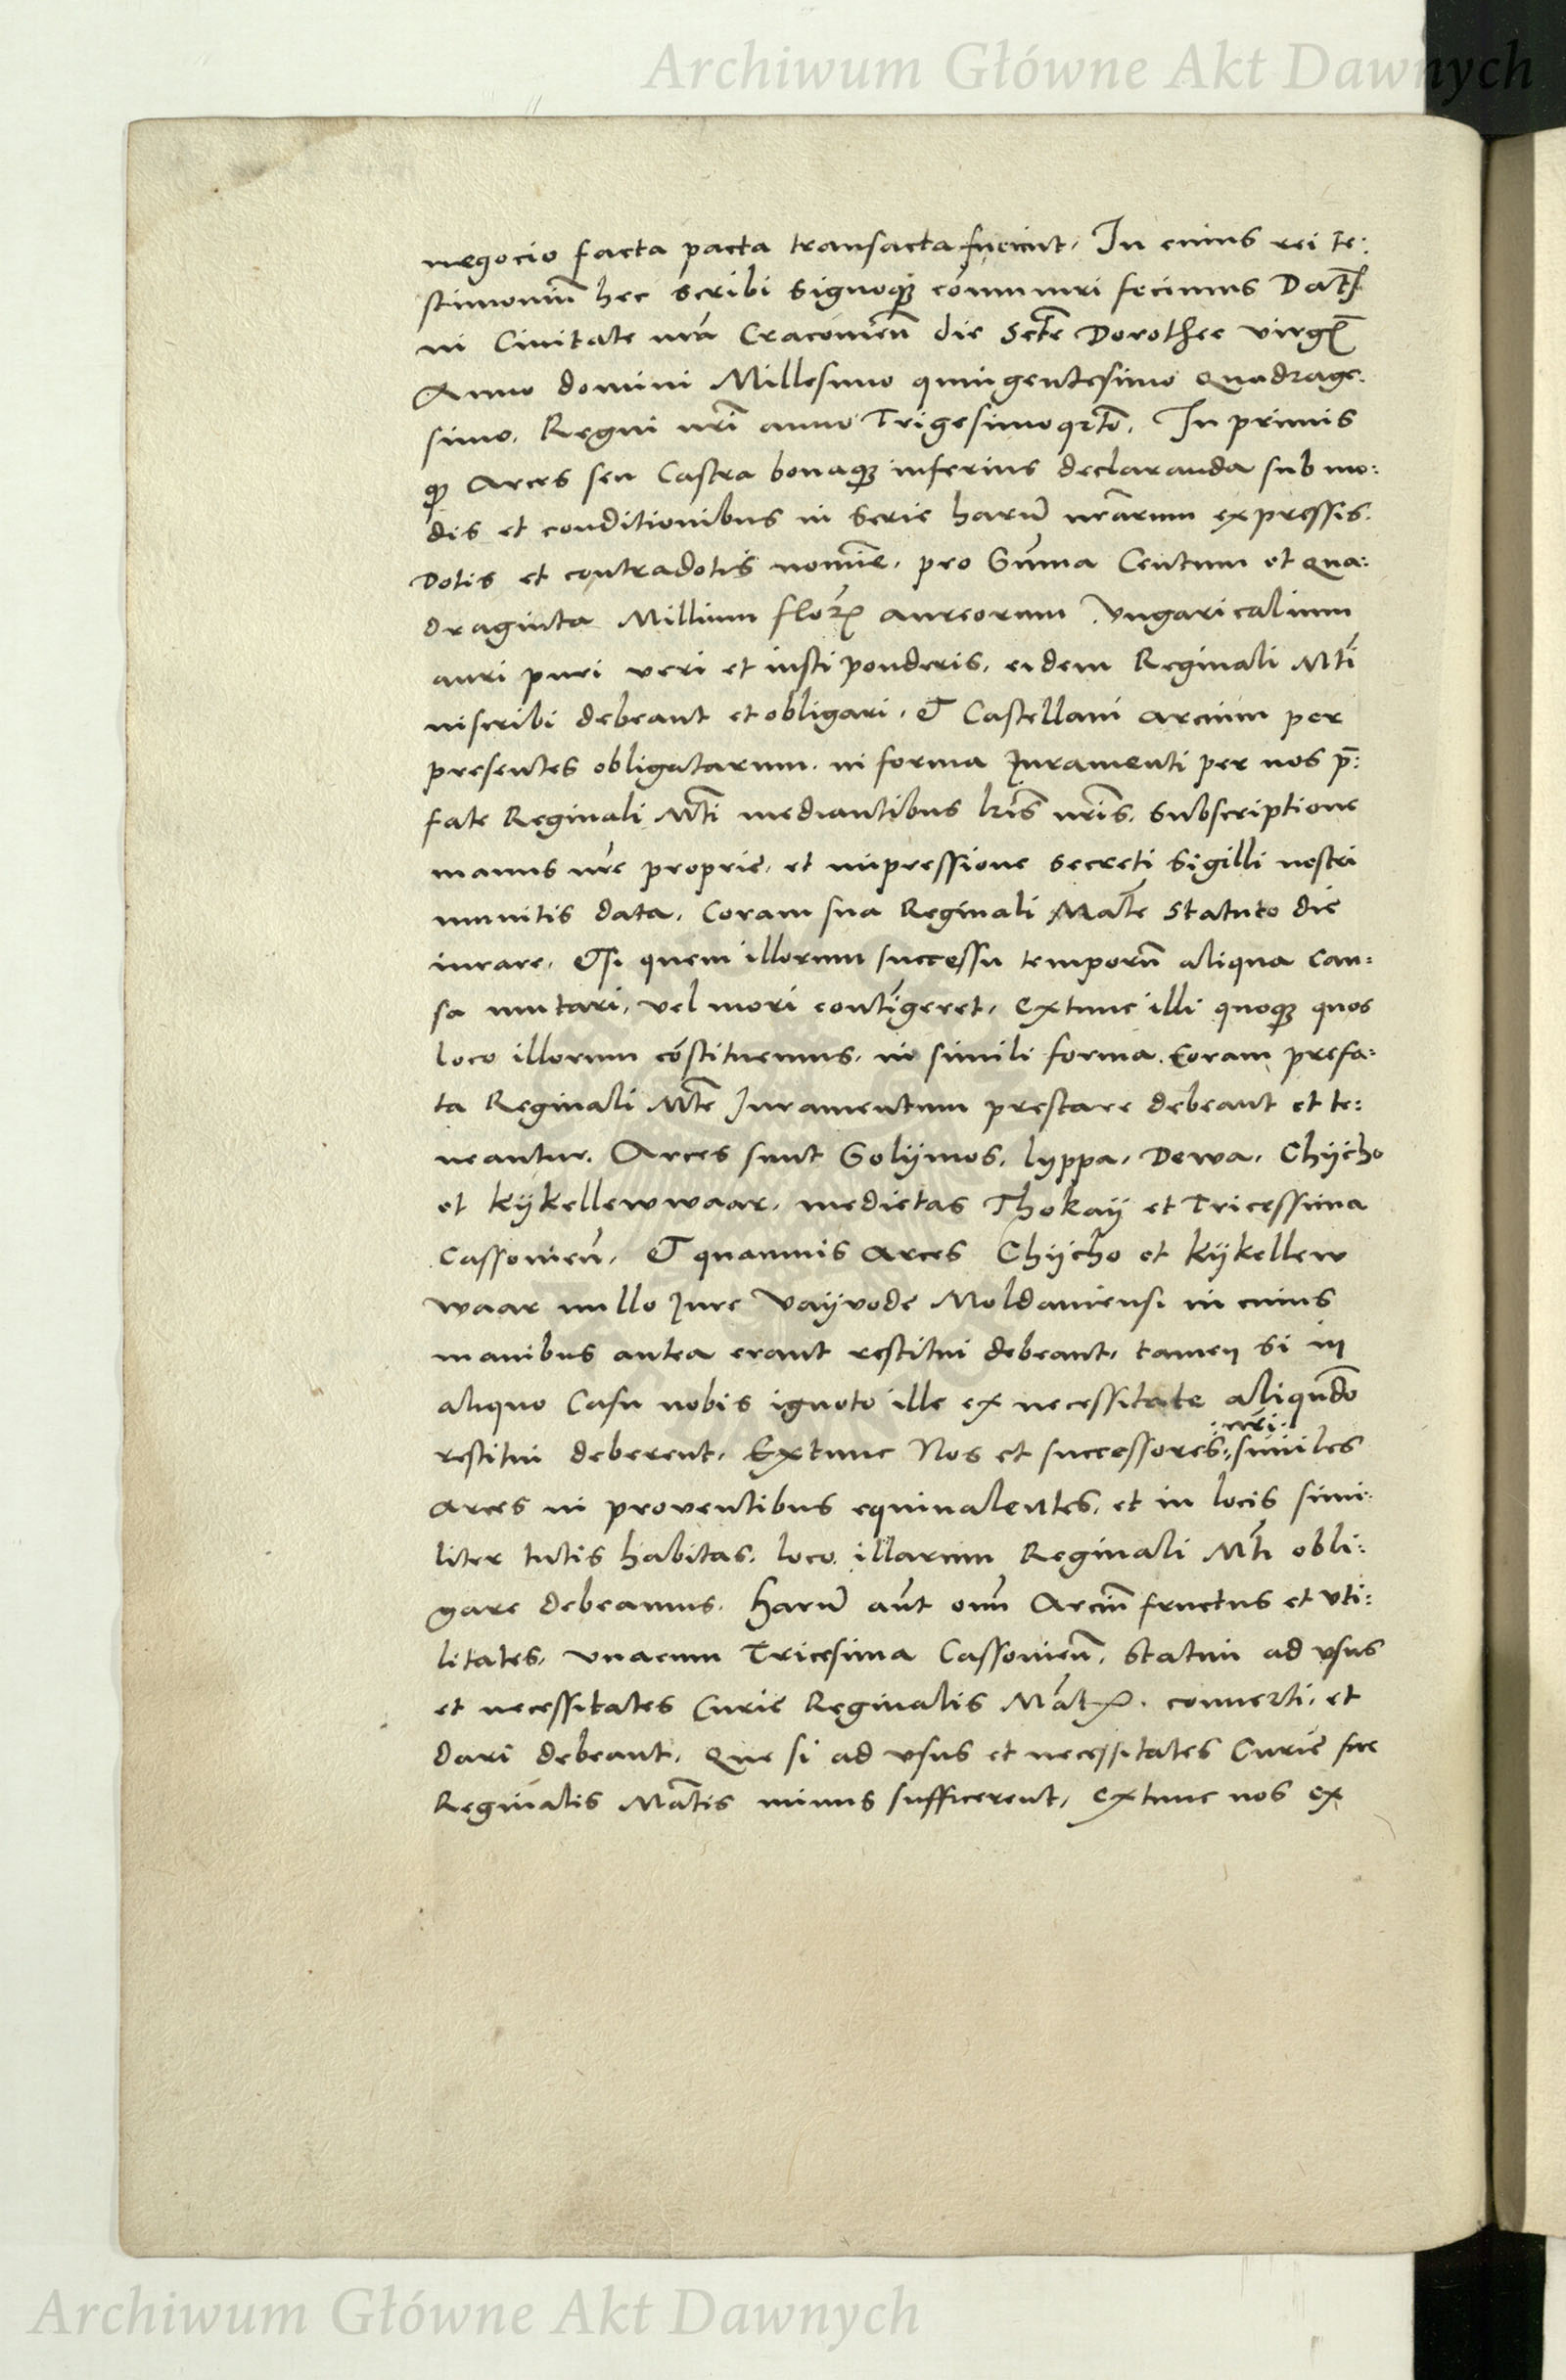 Archiwum Główne Akt Dawnych
negocio facta pacta transacta fuerint, In cuius rei te:
stimoniũ hec scribi signoqꝫ cõmuniri fecimus Datꝭ
in Ciuitate nrã Cracouieñ die Sctẽ Dorothee virgꝭ
Anno domini Millesimo quingentesimo Quadrage.
simo. Regni nrĩ anno Trigesimoqrtõ. In primis
qꝫ Arces seu Castra bonaqꝫ inferius declaranda sub mo:
dis et conditionibus in serie harũ nrãrum expressis.
Dotis et contradotis nomiẽ, pro Sũma Centum et Qua:
draginta Millium florꝝ aureorum Vngaricalium
auri puri veri et iusti ponderis, eidem Reginali Mtĩ
inscribi debeant et obligari, Et Castellani arcium per
presentes obligatarum. in forma Juramenti per nos p̃:
fate Reginali Mtĩ mediantibus lrĩs nrĩs, subscriptione
manus nrẽ proprie, et impressione secreti Sigilli nostri
munitis data, Coram sua Reginali Matẽ statuto die
iurare, Et si quem illorum successu temporũ aliqua Cau:
sa mutari, vel mori contĩgeret, Extunc illi quoqꝫ quos
loco illorum cõstituemus, in simili forma. Coram prefa:
ta Reginali Mtẽ Juramentum prestare debeant et te:
neantur. Arces sunt Solÿmos, lyppa, Dewa, Chÿcho
et Kÿkellewwaar, medietas Thokaÿ et Tricessima
Cassouieñ, Et quamuis Arces Chÿcho et Kÿkellew
waar nullo Jure Vaÿvode Moldauiensi in cuius
manibus antea erant restitui debeant, tamen si in
aliquo Casu nobis ignoto ille ex necessitate aliqñdo
restitui deberent, Extunc Nos et successores :nrĩ: similes
arces in proventibus equiualentes, et in locis simi:
liter tutis habitas, loco illarum Reginali Mtĩ obli:
gare debeamus. harũ aũt oĩm Arciũ fructus et vti:
litates, vnacum Tricesima Cassouieñ, statim ad vsus
et necessitates Curie Reginalis Mãtꝭ. conuerti, et
dari debeant, Que si ad vsus et necessitates Curie sue
Reginalis Matĩs minus sufficerent, extunc nos ex
Archiwum Główne Akt Dawnych